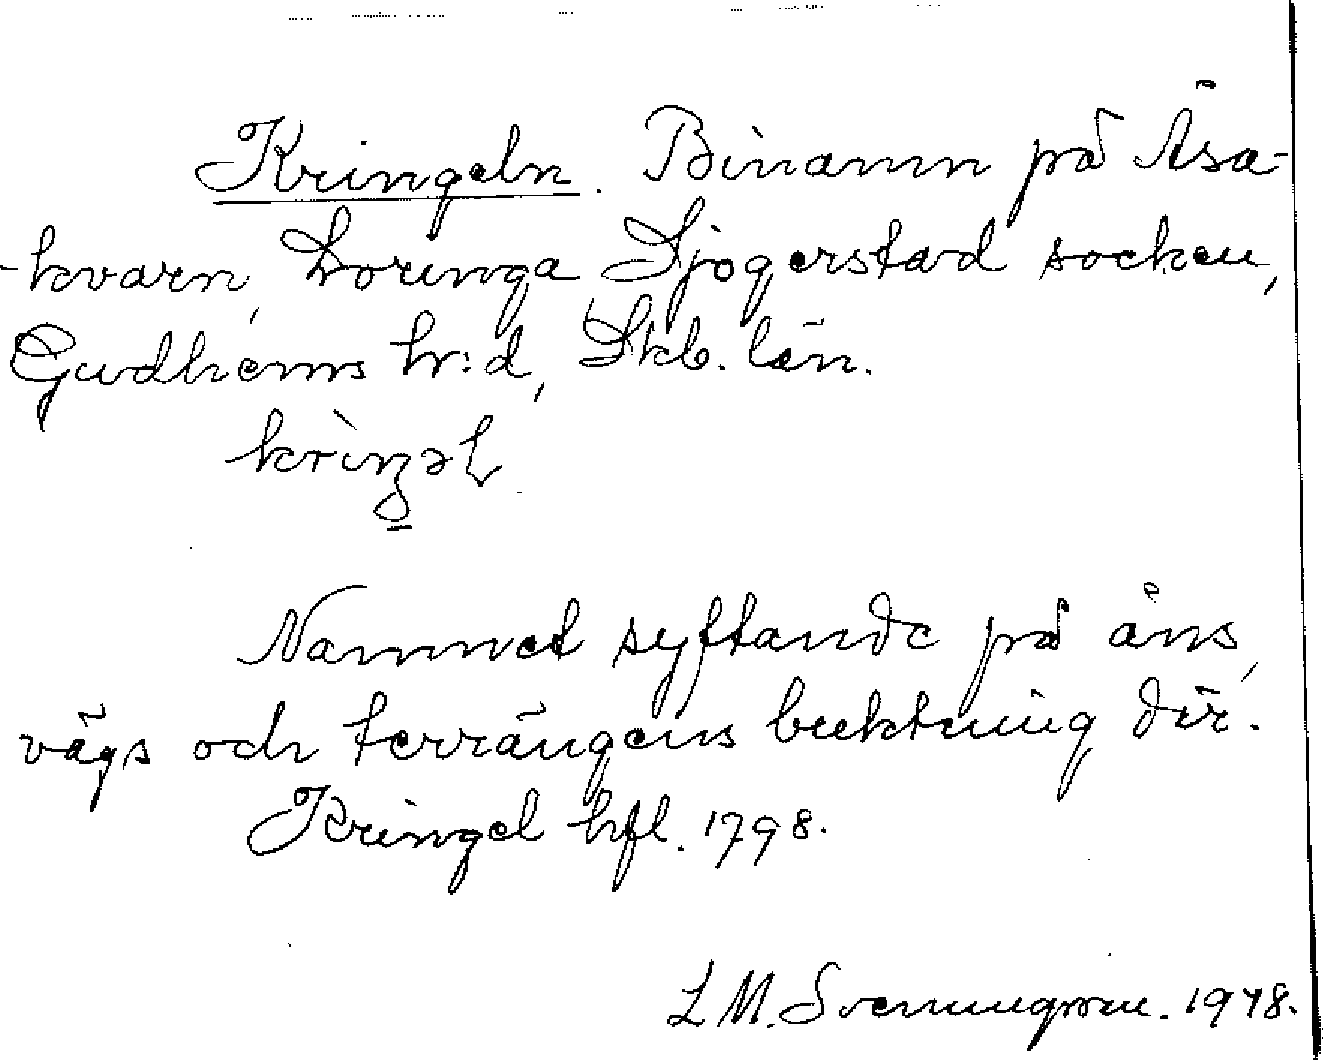 Kringeln. Binamn på Åsa-
-kvarn, Loringa Sjogerstad socken,
Gudhems h:d, Skb. län.
Namnet syftande på åns,
vägs och terrängens buktning där.
Kringel hfl. 1798.
L M. Svenungsson. 1948.